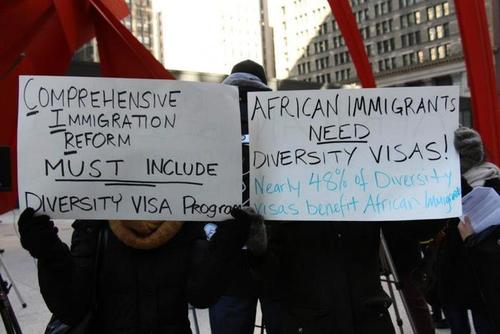 COMPREHENSIVE
IMMIGRATION
REFORM
MUST INCLUDE
DIVERSITY VISA Program
AFRICAN IMMIGRANTS
NEED
DIVERSITY VISAS!
Nearly 48% of Diversity
visas benefit African Immigrants